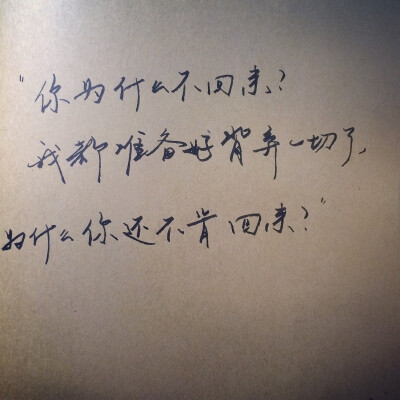 “你为什么不回来？
我都准备好背弃一切了，
为什么你还不肯回来？”